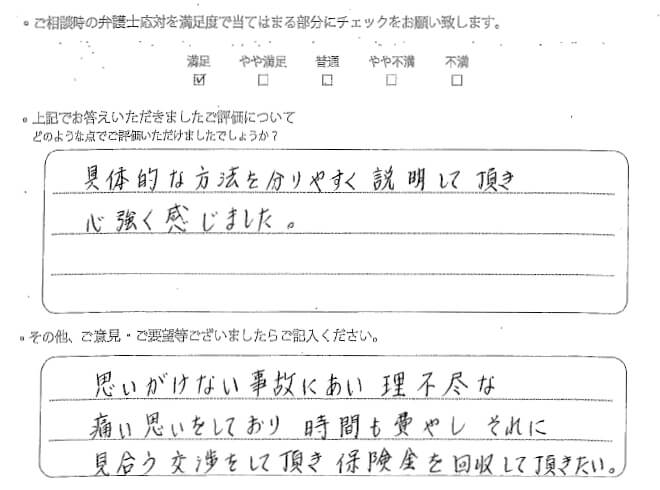 ご相談時の弁護士応対を満足度で当てはまる部分にチェックをお願い致します。
満足 やや満足 普通 やや不満 不満
上記でお答えいただきましたご評価について
どのような点でご評価いただけましたでしょうか？
具体的な方法を分りやすく説明して頂き
心強く感じました。
その他、ご意見・ご要望等ございましたらご記入ください。
思いがけない事故にあい理不尽な
痛い思いをしており時間も費やしそれに
見合う交渉をして頂き保険金を回収して頂きたい。